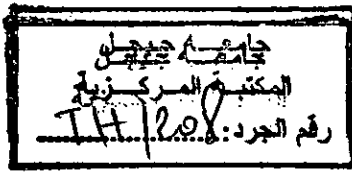 جامعة جيجل
المكتبة المركزية
رقم الجرد: TH/208